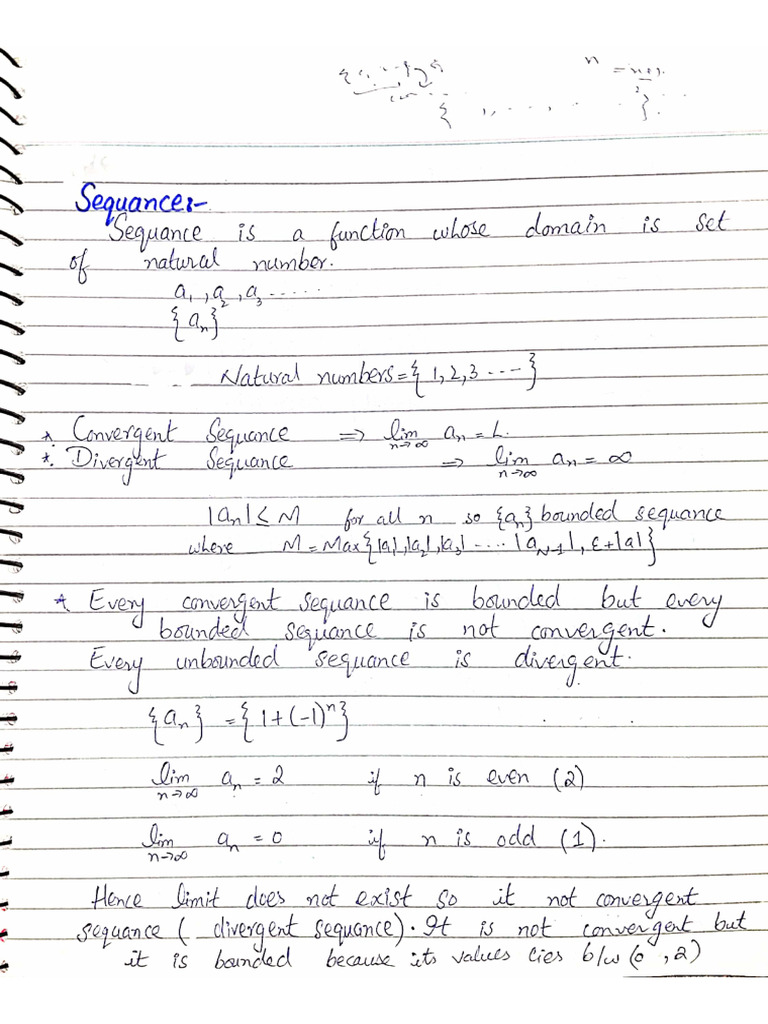 n
= n+1.
Sequance:-
Sequance is a function whose domain is set
of natural number.
a₁, a₂, a₃ ......
{aₙ}
Natural numbers = { 1, 2, 3 .... }
* Convergent Sequance ⇒ lim n→∞ aₙ = L.
* Divergent Sequance ⇒ lim n→∞ aₙ = ∞
|aₙ| ≤ M for all n so {aₙ} bounded sequance
where M = Max{|a₁|, |a₂|, |a₃| .... |a_{N-1}|, ε+|a|}
* Every convergent sequance is bounded but every
bounded sequance is not convergent.
Every unbounded sequance is divergent.
{aₙ} = {1+(-1)ⁿ}
lim n→∞ aₙ = 2 if n is even (2)
lim n→∞ aₙ = 0 if n is odd (1).
Hence limit does not exist so it not convergent
sequance ( divergent sequance). It is not convergent but
it is bounded because its values lies b/w (0 , 2)